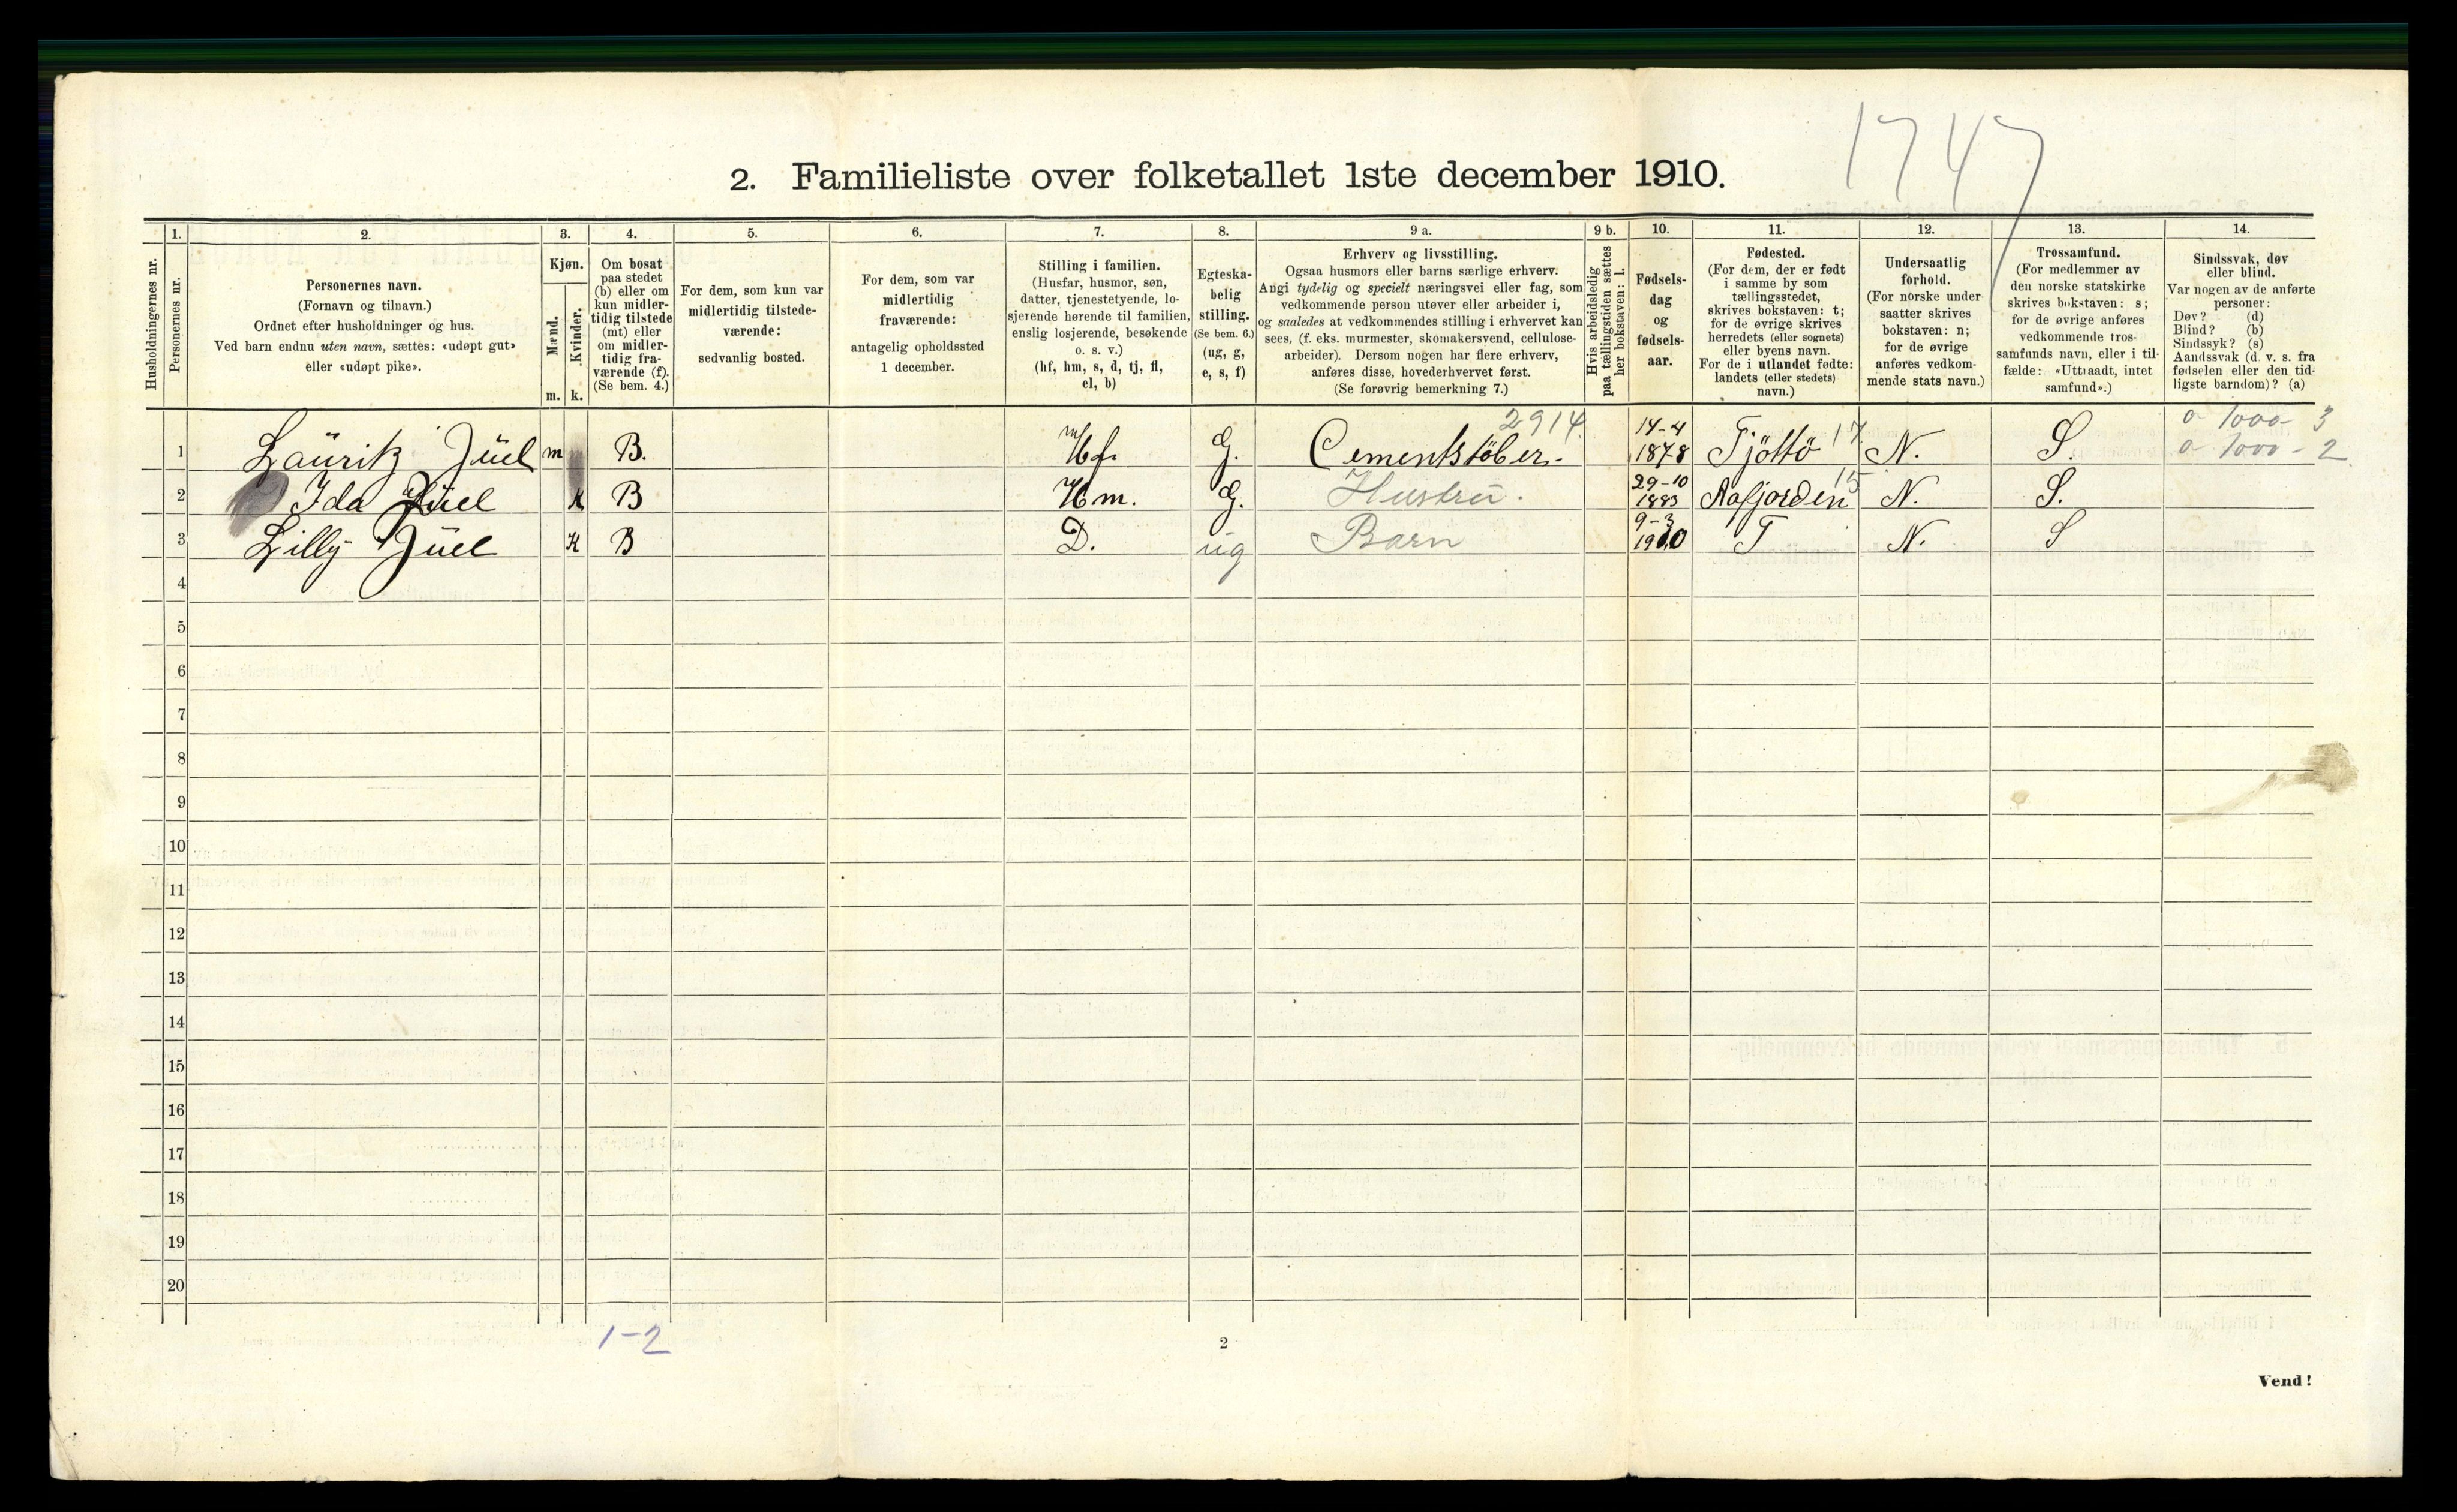 1747
2. Familieliste over folketallet 1ste december 1910.
1. 2. 3. 4. 5. 6. 7. 8. 9 a. 9 b. 10. 11. 12. 13. 14.
Husholdningernes nr.
Personernes nr.
Personernes navn.
(Fornavn og tilnavn.)
Ordnet efter husholdninger og hus.
Ved barn endnu uten navn, sættes: «udøpt gut»
eller «udøpt pike».
Kjøn.
Mænd.
Kvinder.
m. k.
Om bosat
paa stedet
(b) eller om
kun midler-
tidig tilstede
(mt) eller
om midler-
tidig fra-
værende (f).
(Se bem. 4.)
For dem, som kun var
midlertidig tilstede-
værende:
sedvanlig bosted.
For dem, som var
midlertidig
fraværende:
antagelig opholdssted
1 december.
Stilling i familien.
(Husfar, husmor, søn,
datter, tjenestetyende, lo-
sjerende hørende til familien,
enslig losjerende, besøkende
o. s. v.)
(hf, hm, s, d, tj, fl,
el, b)
Egteska-
belig
stilling.
(Se bem. 6.)
(ug, g,
e, s, f)
Erhverv og livsstilling.
Ogsaa husmors eller barns særlige erhverv.
Angi tydelig og specielt næringsvei eller fag, som
vedkommende person utøver eller arbeider i,
og saaledes at vedkommendes stilling i erhvervet kan
sees, (f. eks. murmester, skomakersvend, cellulose-
arbeider). Dersom nogen har flere erhverv,
anføres disse, hovederhvervet først.
(Se forøvrig bemerkning 7.)
Hvis arbeidsledig
paa tællingstiden sættes
her bokstaven: l.
Fødsels-
dag
og
fødsels-
aar.
Fødested.
(For dem, der er født
i samme by som
tællingsstedet,
skrives bokstaven: t;
for de øvrige skrives
herredets (eller sognets)
eller byens navn.
For de i utlandet fødte:
landets (eller stedets)
navn.)
Undersaatlig
forhold.
(For norske under-
saatter skrives
bokstaven: n;
for de øvrige
anføres vedkom-
mende stats navn.)
Trossamfund.
(For medlemmer av
den norske statskirke
skrives bokstaven: s;
for de øvrige anføres
vedkommende tros-
samfunds navn, eller i til-
fælde: «Uttraadt, intet
samfund».)
Sindssvak, døv
eller blind.
Var nogen av de anførte
personer:
Døv? (d)
Blind? (b)
Sindssyk? (s)
Aandssvak (d. v. s. fra
fødselen eller den tid-
ligste barndom)? (a)
2914 14-4 17 1000- 3
1 Lauritz Juel m B. Hf. G. Cementstöber. 1878 Tjöttö N. S. 1000 - 2
29-10 15
2 Ida Juel K B Hm. G. Hustru. 1883 Aafjorden N. S.
9-3
3 Lilly Juel K B D. ug Barn 1910 T N. S
4
5
6
7
8
9
10
11
12
13
14
15
16
17
18
19
20
1-2
2
Vend!